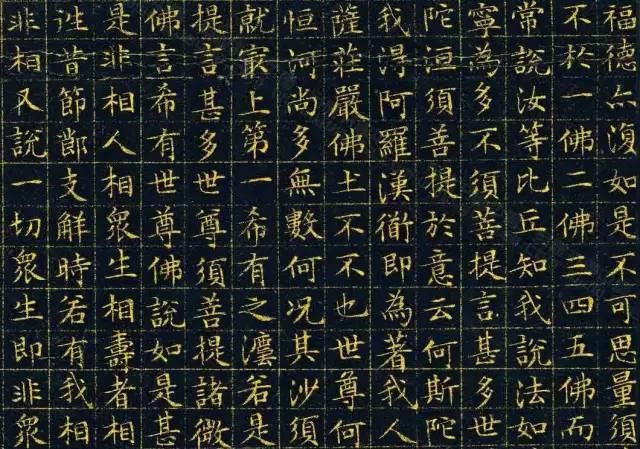 福德亦復如是不可思量須
不於一佛二佛三四五佛而
常說汝等比丘知我說法如
寧為多不須菩提言甚多世
陀洹須菩提於意云何斯陀
我淂阿羅漢衜即為著我人
薩莊嚴佛土不不也世尊何
恒河尚多無數何況其沙須
就冣上第一希有之灋若是
提言甚多世尊須菩提諸微
佛言希有世尊佛說如是甚
是非相人相眾生相壽者相
往昔節節支解時若有我相
非相又說一切眾生即非眾